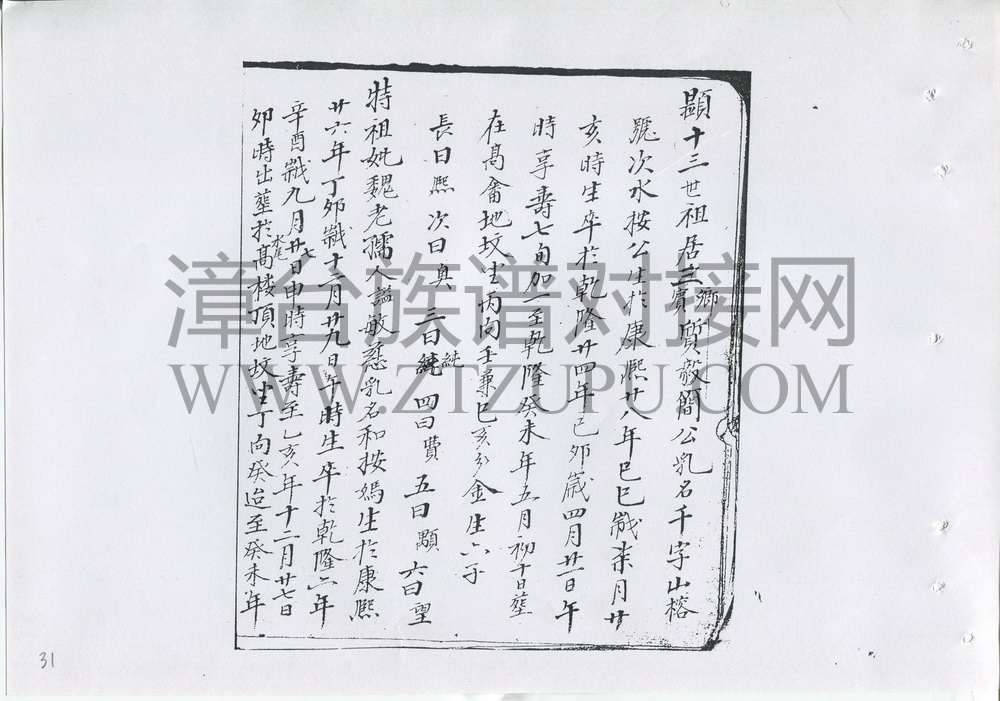 顯十三世祖居鄉賓質敬簡公乳名千字山榕
號次水按公生於康熙廿八年己巳歲柒月廿
亥時生卒於乾隆廿四年己夘歲四月廿一日午
時享壽七旬加一至乾隆癸未年五月初十日塟
在髙畬地坟坐丙向壬兼巳亥分金生六子
長曰熙 次曰奐 三曰純 純 四曰費 五曰顒 六曰望
特祖妣魏老孺人謚敏慈乳名和按媽生於康熙
廿六年丁夘歲十二月廿九日午時生卒於乾隆六年
辛酉歲九月廿七日申時享壽至乙亥年十二月廿七日
夘時出塟於水尾髙棧頂地坟坐丁向癸迨至癸未年
漳台族谱对接网
WWW.ZTZUPU.COM
31